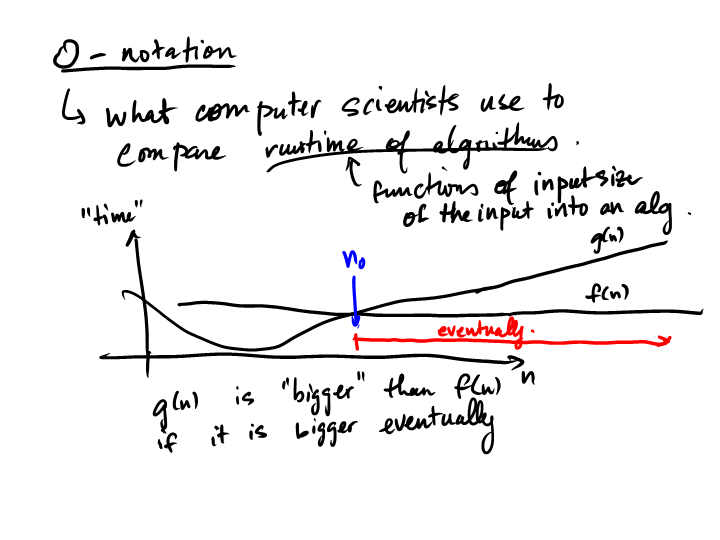 O - notation
↳ what computer scientists use to
compare runtime of algorithms.
functions of input size
of the input into an alg.
"time"
g(n)
n₀
f(n)
eventually.
n
g(n) is "bigger" than f(n)
if it is bigger eventually